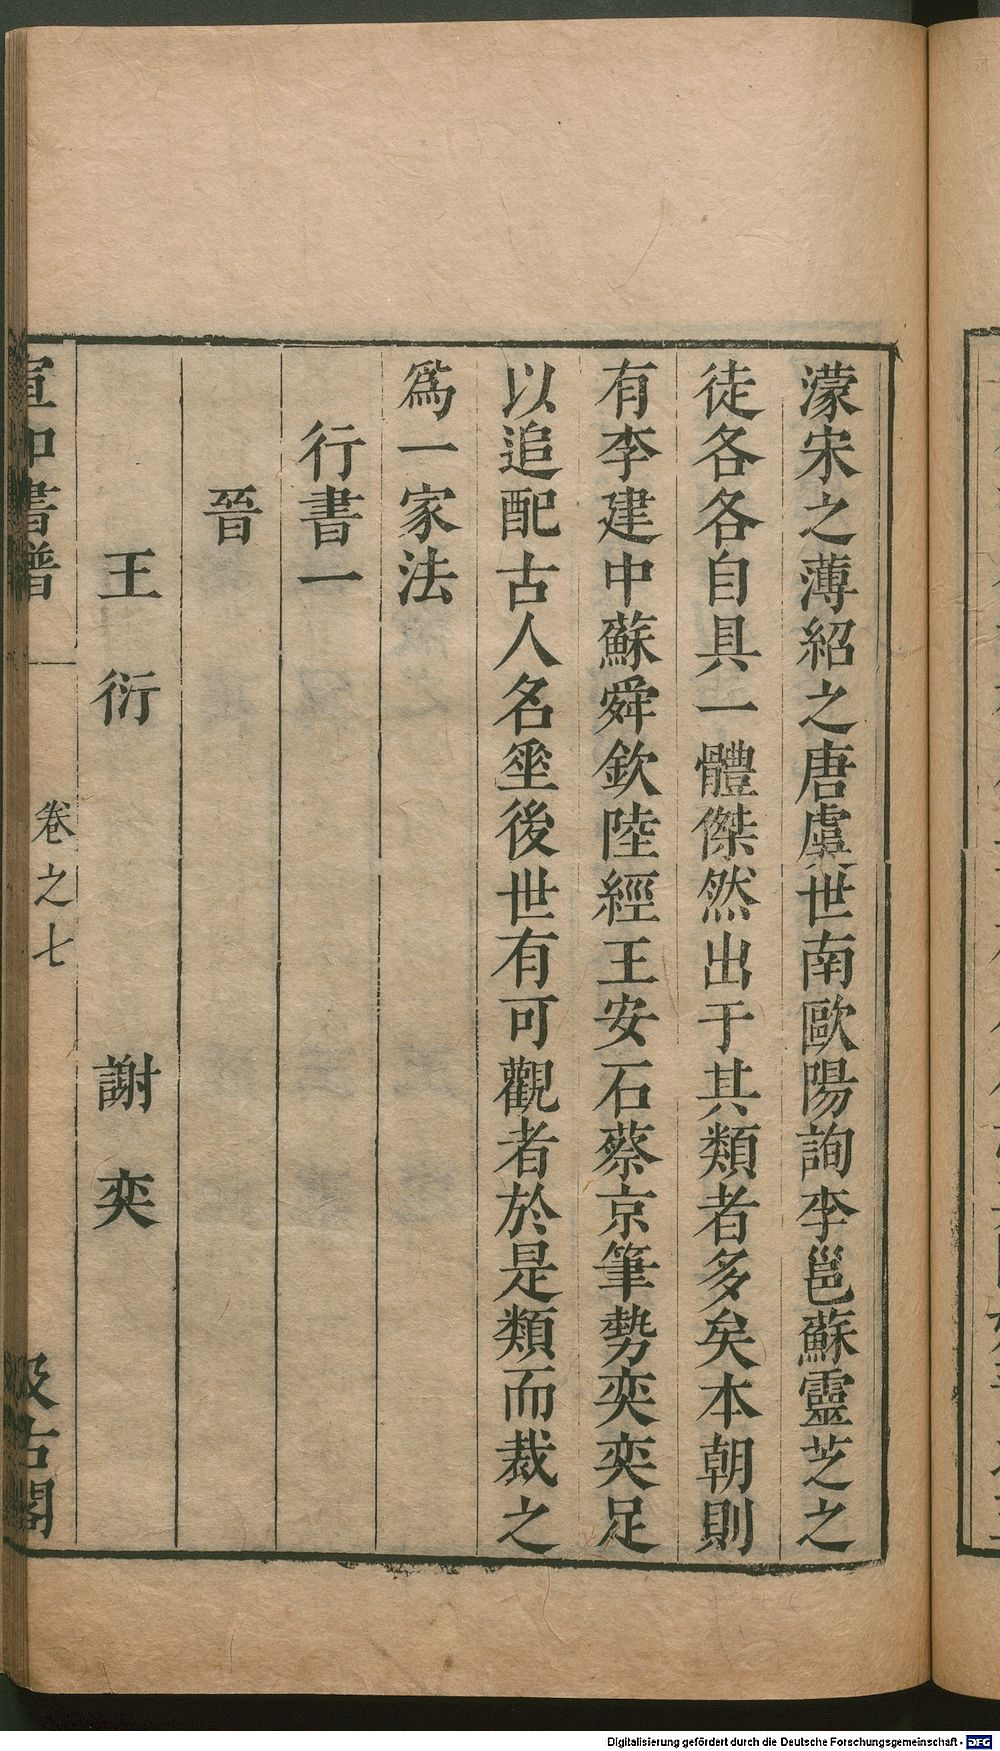 濛宋之薄紹之唐虞世南歐陽詢李邕蘇靈芝之
徒各各自具一體傑然出于其類者多矣本朝則
有李建中蘇舜欽陸經王安石蔡京筆勢奕奕足
以追配古人名垂後世有可觀者於是類而裁之
爲一家法
行書一
晉
王衍　謝奕
宣和書譜　卷之七　汲古閣
Digitalisierung gefördert durch die Deutsche Forschungsgemeinschaft - DFG